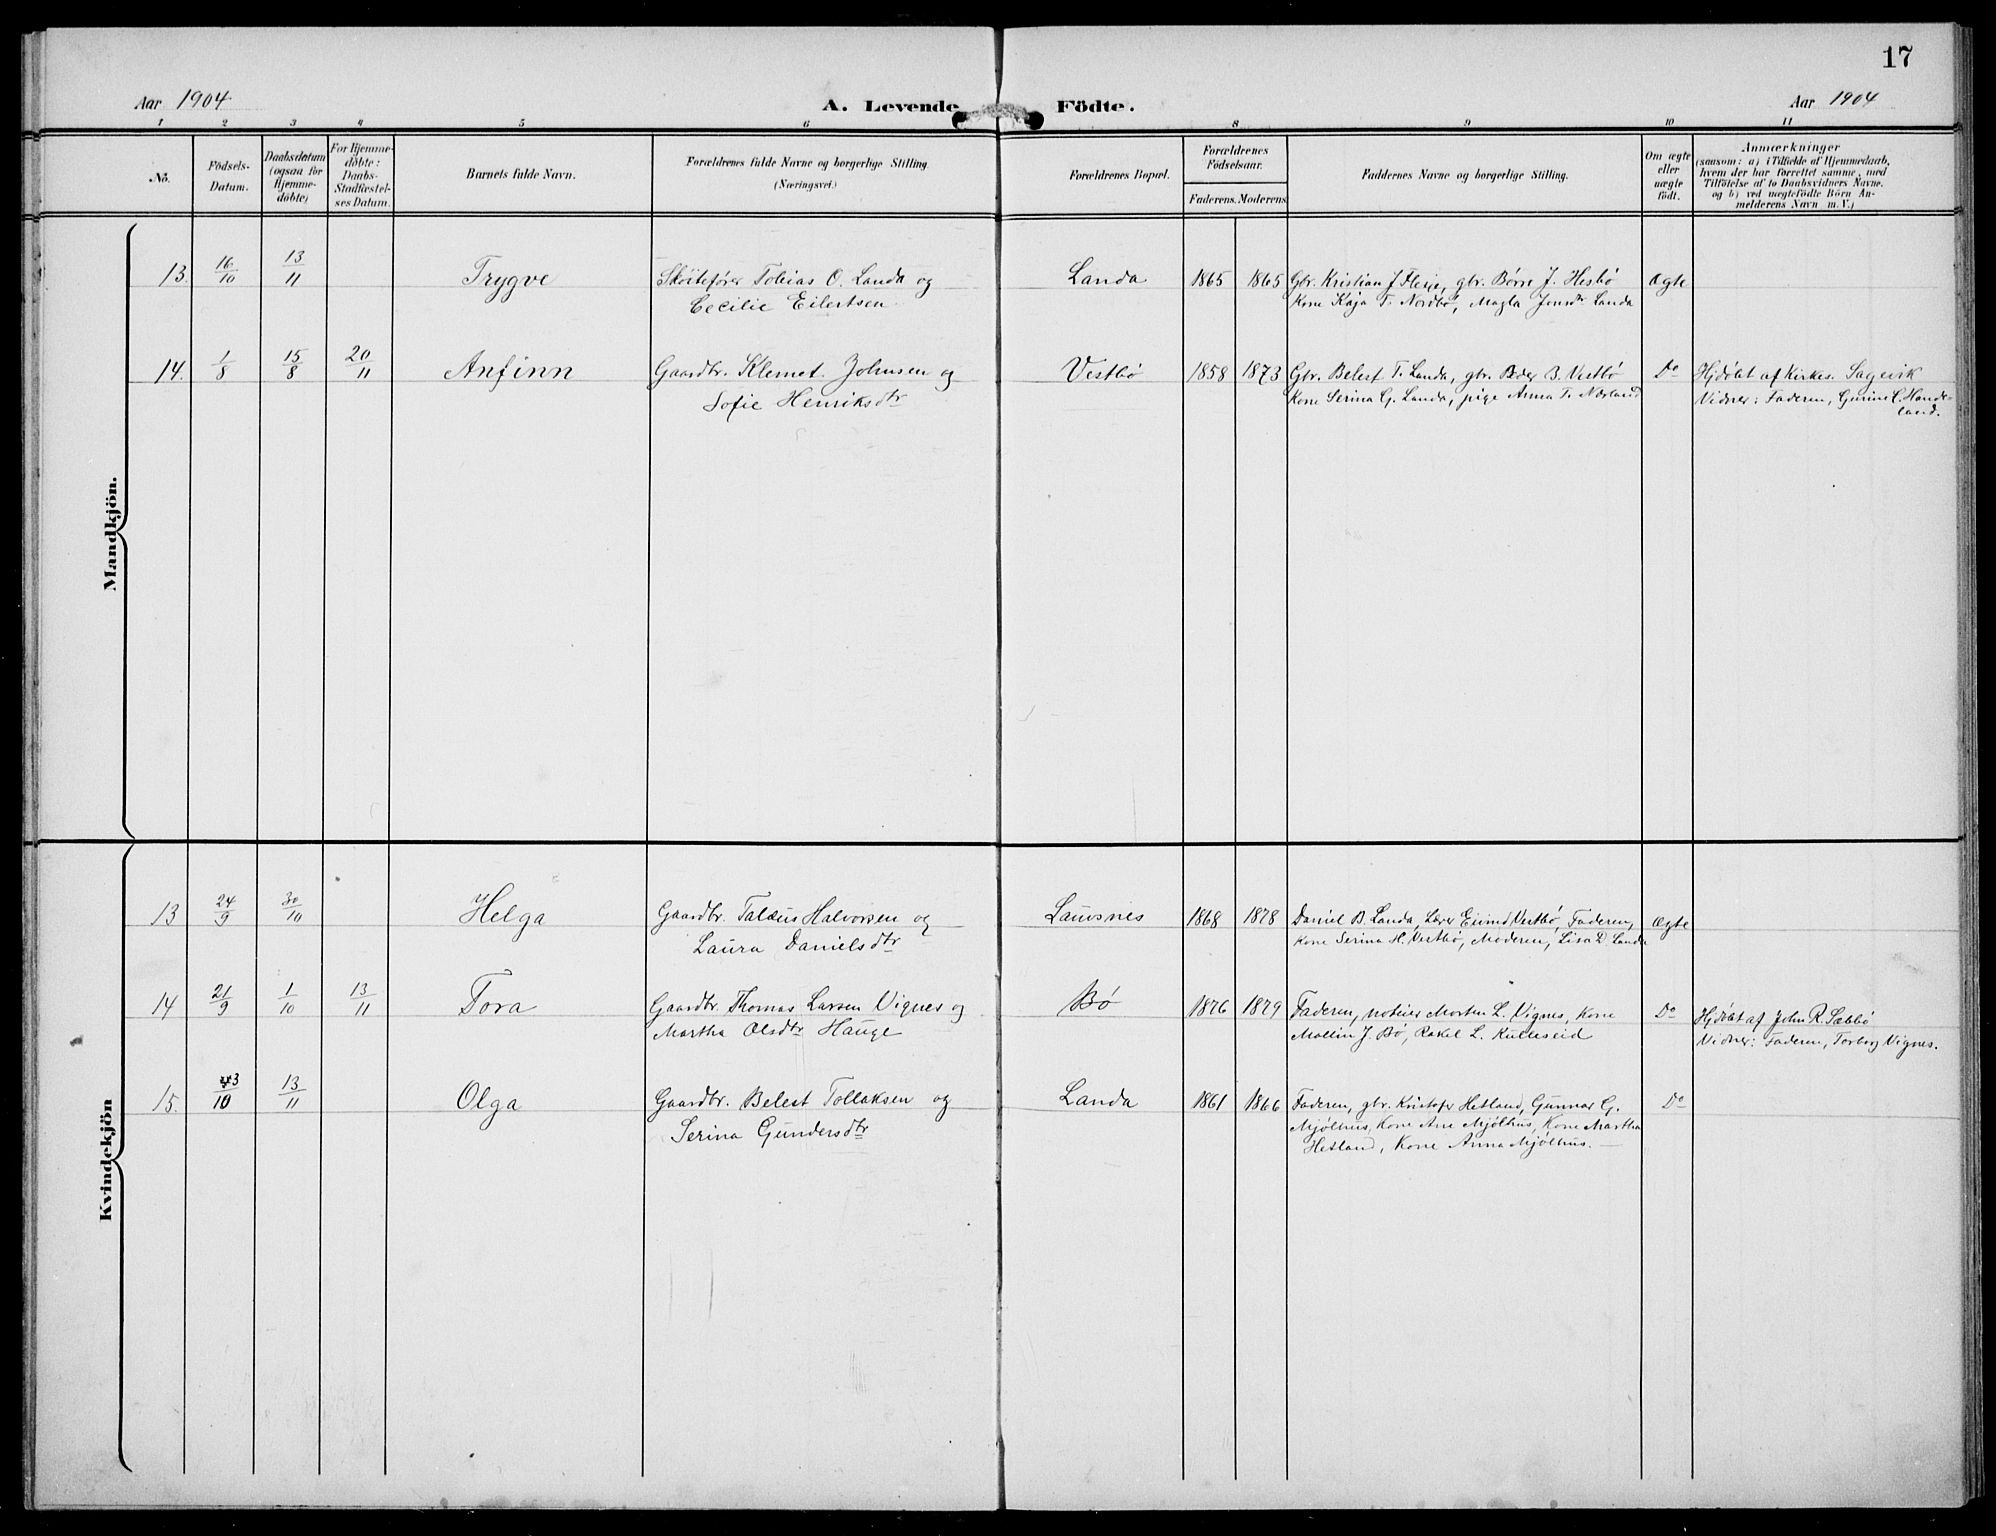 17
Aar 1904
A. Levende Födte.
Aar 1904
1 2 3 4 5 6 8 9 10 11
No.
Födsels-
Datum.
Daabsdatum
(ogsaa for
Hjemme-
döbte)
For Hjemme-
döbte:
Daabs-
Stadfæstel-
ses Datum.
Barnets fulde Navn.
Forældrenes fulde Navne og borgerlige Stilling.
(Næringsvei.)
Forældrenes Bopæl.
Forældrenes
Födselsaar.
Faderens. Moderens
Faddernes Navne og borgerlige Stilling.
Om ægte
eller
uægte
födt.
Anmærkninger
(saasom: a) i Tilfælde af Hjemmedaab,
hvem der har forrettet samme, med
Tilföielse af to Daabsvidners Navne.
og b) ved uægtefödte Börn An-
melderens Navn m. V.)
Mandkjön.
13. 16/10 13/11 Trygve
Skøitefører Tobias O. Landa og
Cecilie Eilertsen
Landa 1865 1865
Gbr. Kristian J. Flesje, gbr. Børre J. Hesbø
Kone Kaja T. Nordbø, Magla Jonsdtr Landa
Ægte
14. 1/8 15/8 20/11 Anfinn
Gaardbr. Klemet Johnsen og
Sofie Henriksdtr
Vestbø 1858 1873
Gbr. Belest T. Landa, gbr. Boer B. Vestbø
Kone Serina G. Landa, pige Anna T. Nærland
Do
Hjdøbt af Kirkes. Sagvik
Vidner: Faderen, Gurine C. Hande-
land.
Kvindekjön
13 24/9 30/10 Helga
Gaardbr. Taleus Halvorsen og
Laura Danielsdtr
Lauvsnes 1868 1878
Daniel B. Landa, Lærer Eivind Vestbø, Faderen,
Kone Serina H. Vestbø, Moderen, Lisa D. Landa
Ægte
14 21/9 1/10 13/11 Tora
Gaardbr. Thomas Larsen Vignes og
Martha Olsdtr Hauge
Bø 1876 1879
Faderen, notier Morten L. Vignes, Kone
Mallin J. Bø, Rakel L. Kulleseid
Do
Hjdøbt af John R. Sæbbø
Vidner: Faderen, Torborg Vignes.
15. 3/10 13/11 Olga
Gaardbr. Belest Tollaksen og
Serina Gundersdtr
Landa 1861 1866
Faderen, gbr. Kristofer Hetland, Gunnar G.
Mjølhus, Kone Ane Mjølhus, Kone Martha
Hetland, Kone Anna Mjølhus. —
Do